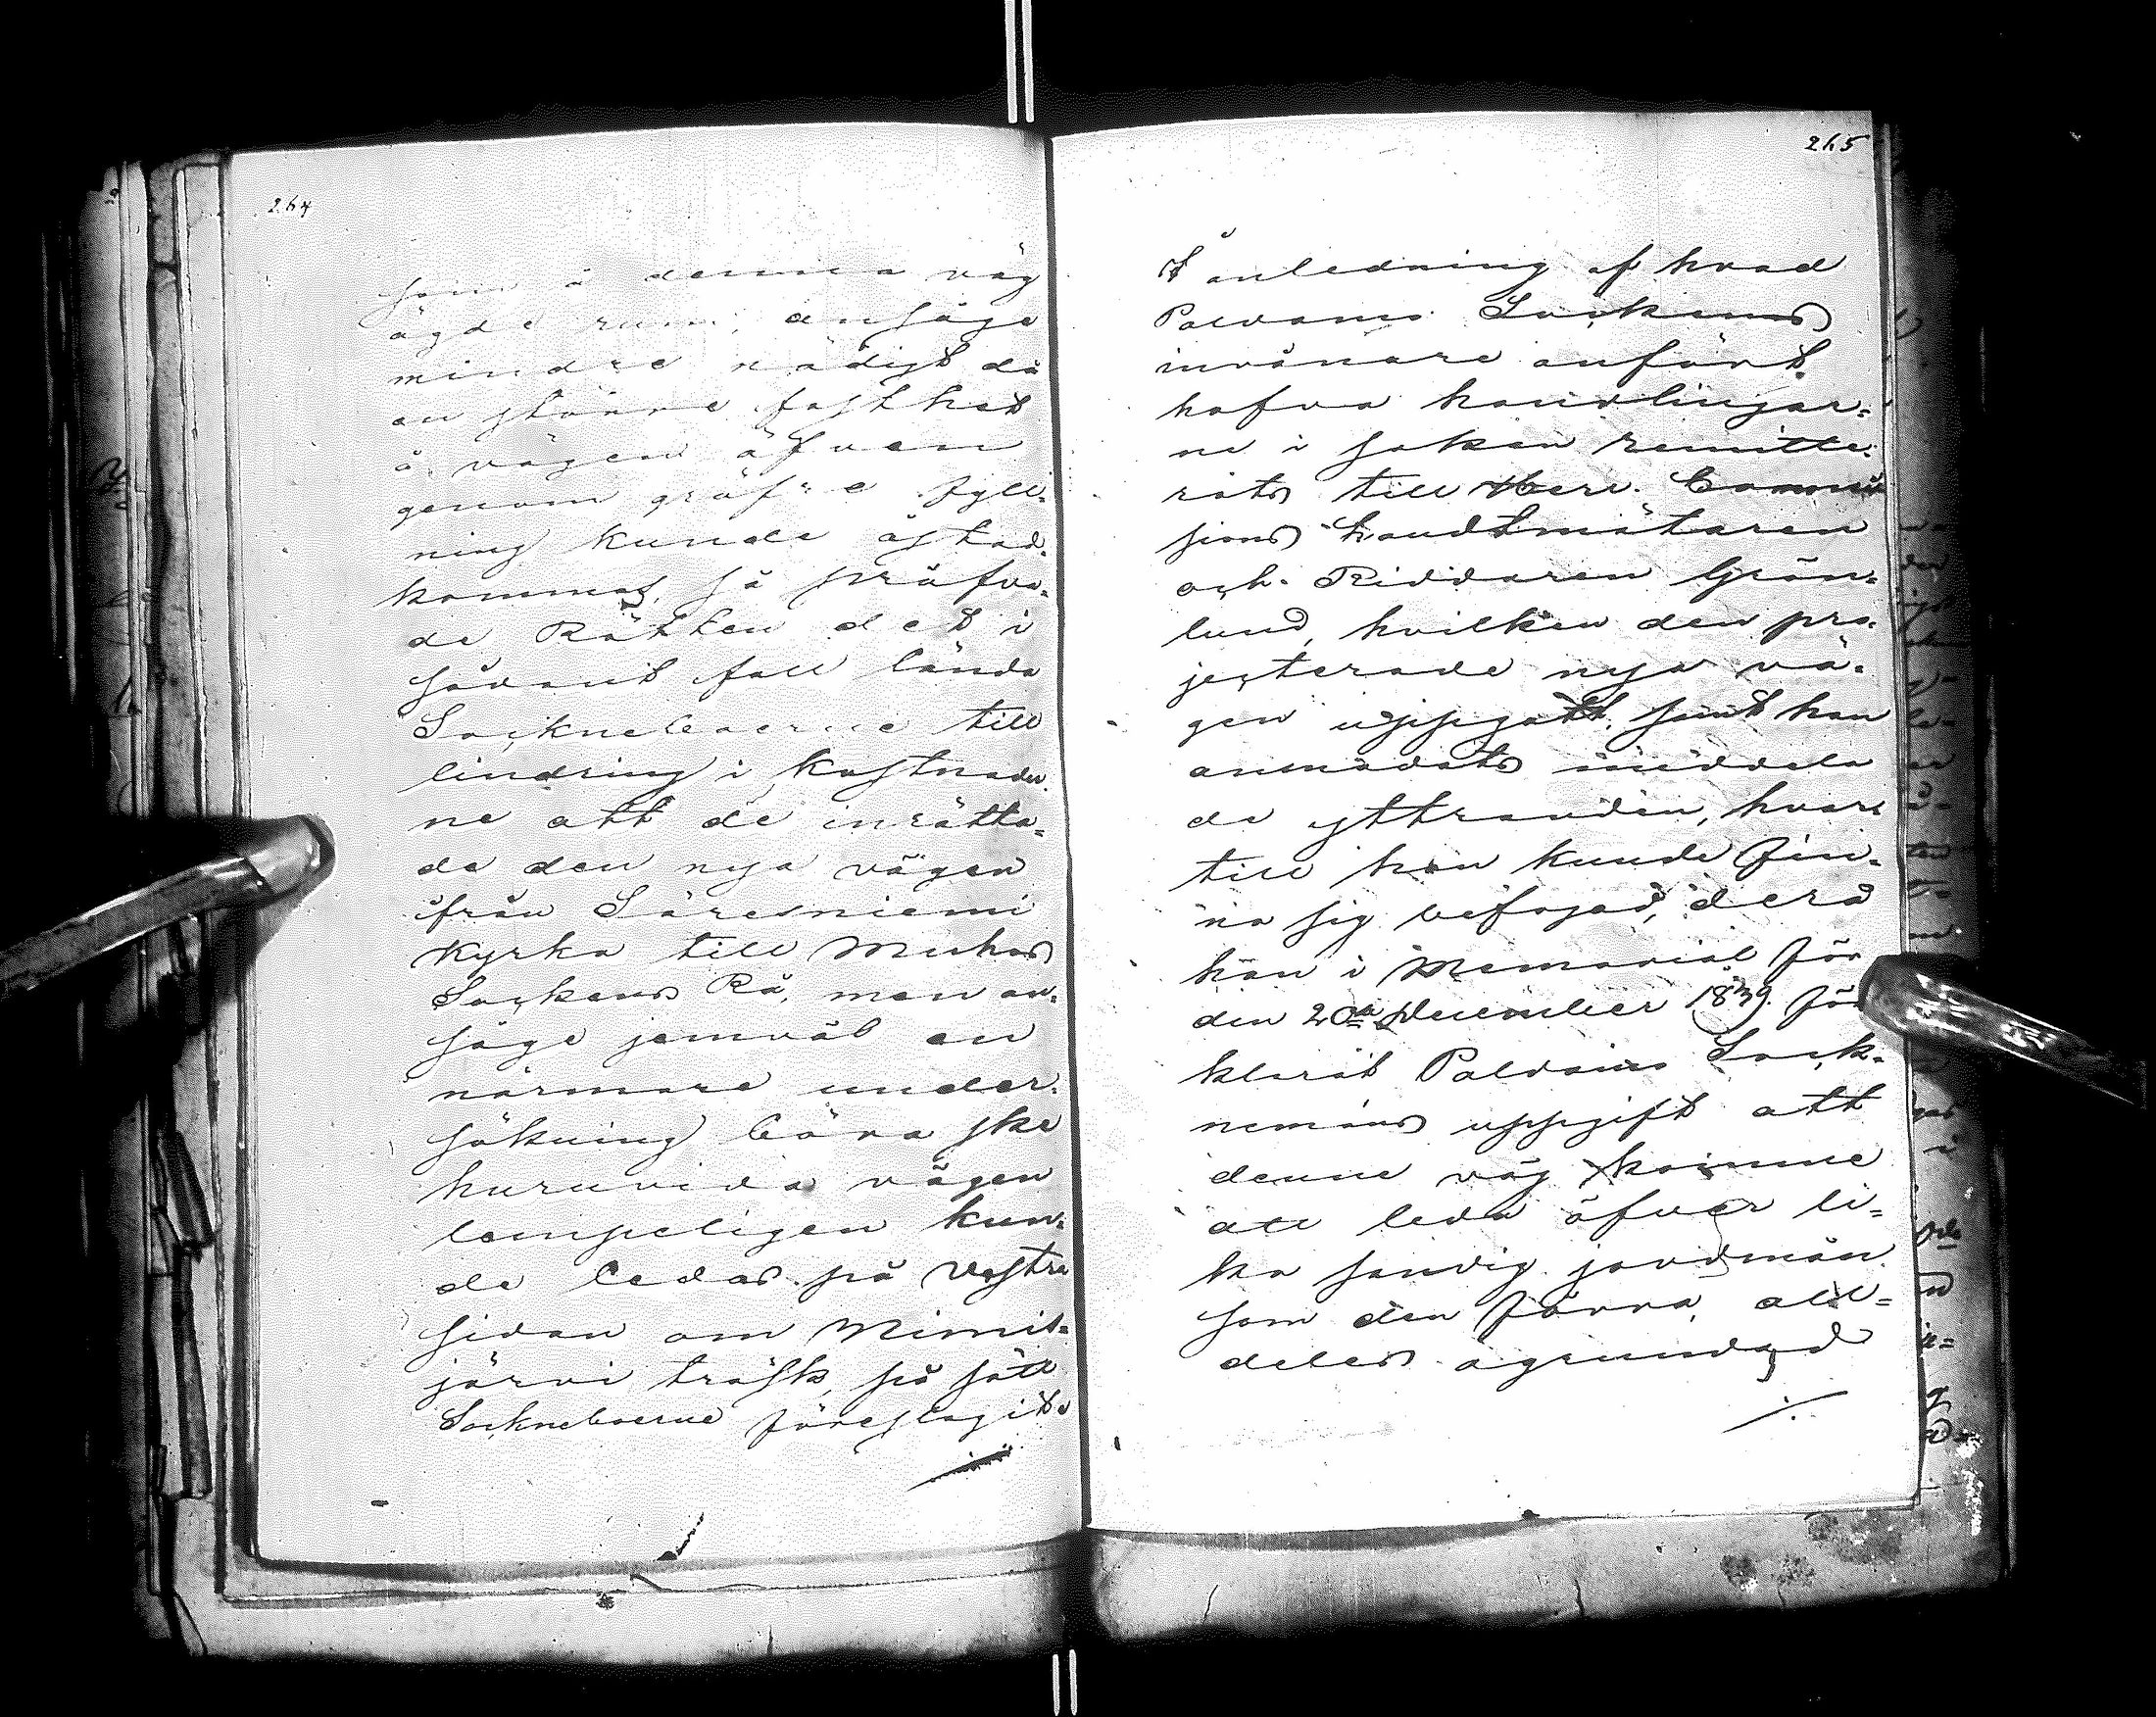 264
som å denna väg
ägde rum, ansåge
mindre nödigt då
en större fasthet
å vägen äfven
genom gräfve fyll-
ning kunde åstad-
kommas, så pröfva-
de Rätten det i
sådant fall lända
Sockneboerne till
lindring i kostnader-
ne att de inrätta-
de den nya vägen
ifrån Säresniemi
Kyrka till Muhos
Sockens Rå, men an-
såge jemväl en
närmare under-
sökning böra ske
huruvida vägen
lämpeligen kun-
de ledas på Vestra
sidan om Nimis-
järvi träsk, på sätt
Sockneboerne föreslagit.
265
I anledning af hvad
Paldamo Sockens
invånare anfört
hafva handlingar-
ne i saken remitte-
rats till Herr Commis
sions Landtmätaren
och Riddaren Grön-
lund, hvilken den pro-
jecterade nya vä-
gen uppgått, samt han
anmodats meddela
de yttranden, hvar-
till han kunde fin-
na sig befogad, derå
han i Memorial för
den 20de December 1839 för
klarat Paldamo Sock-
nemäns uppgift att
denne väg komme
att leda öfver li-
ka sandig jordmån
som den förra, all-
deles ogrundad